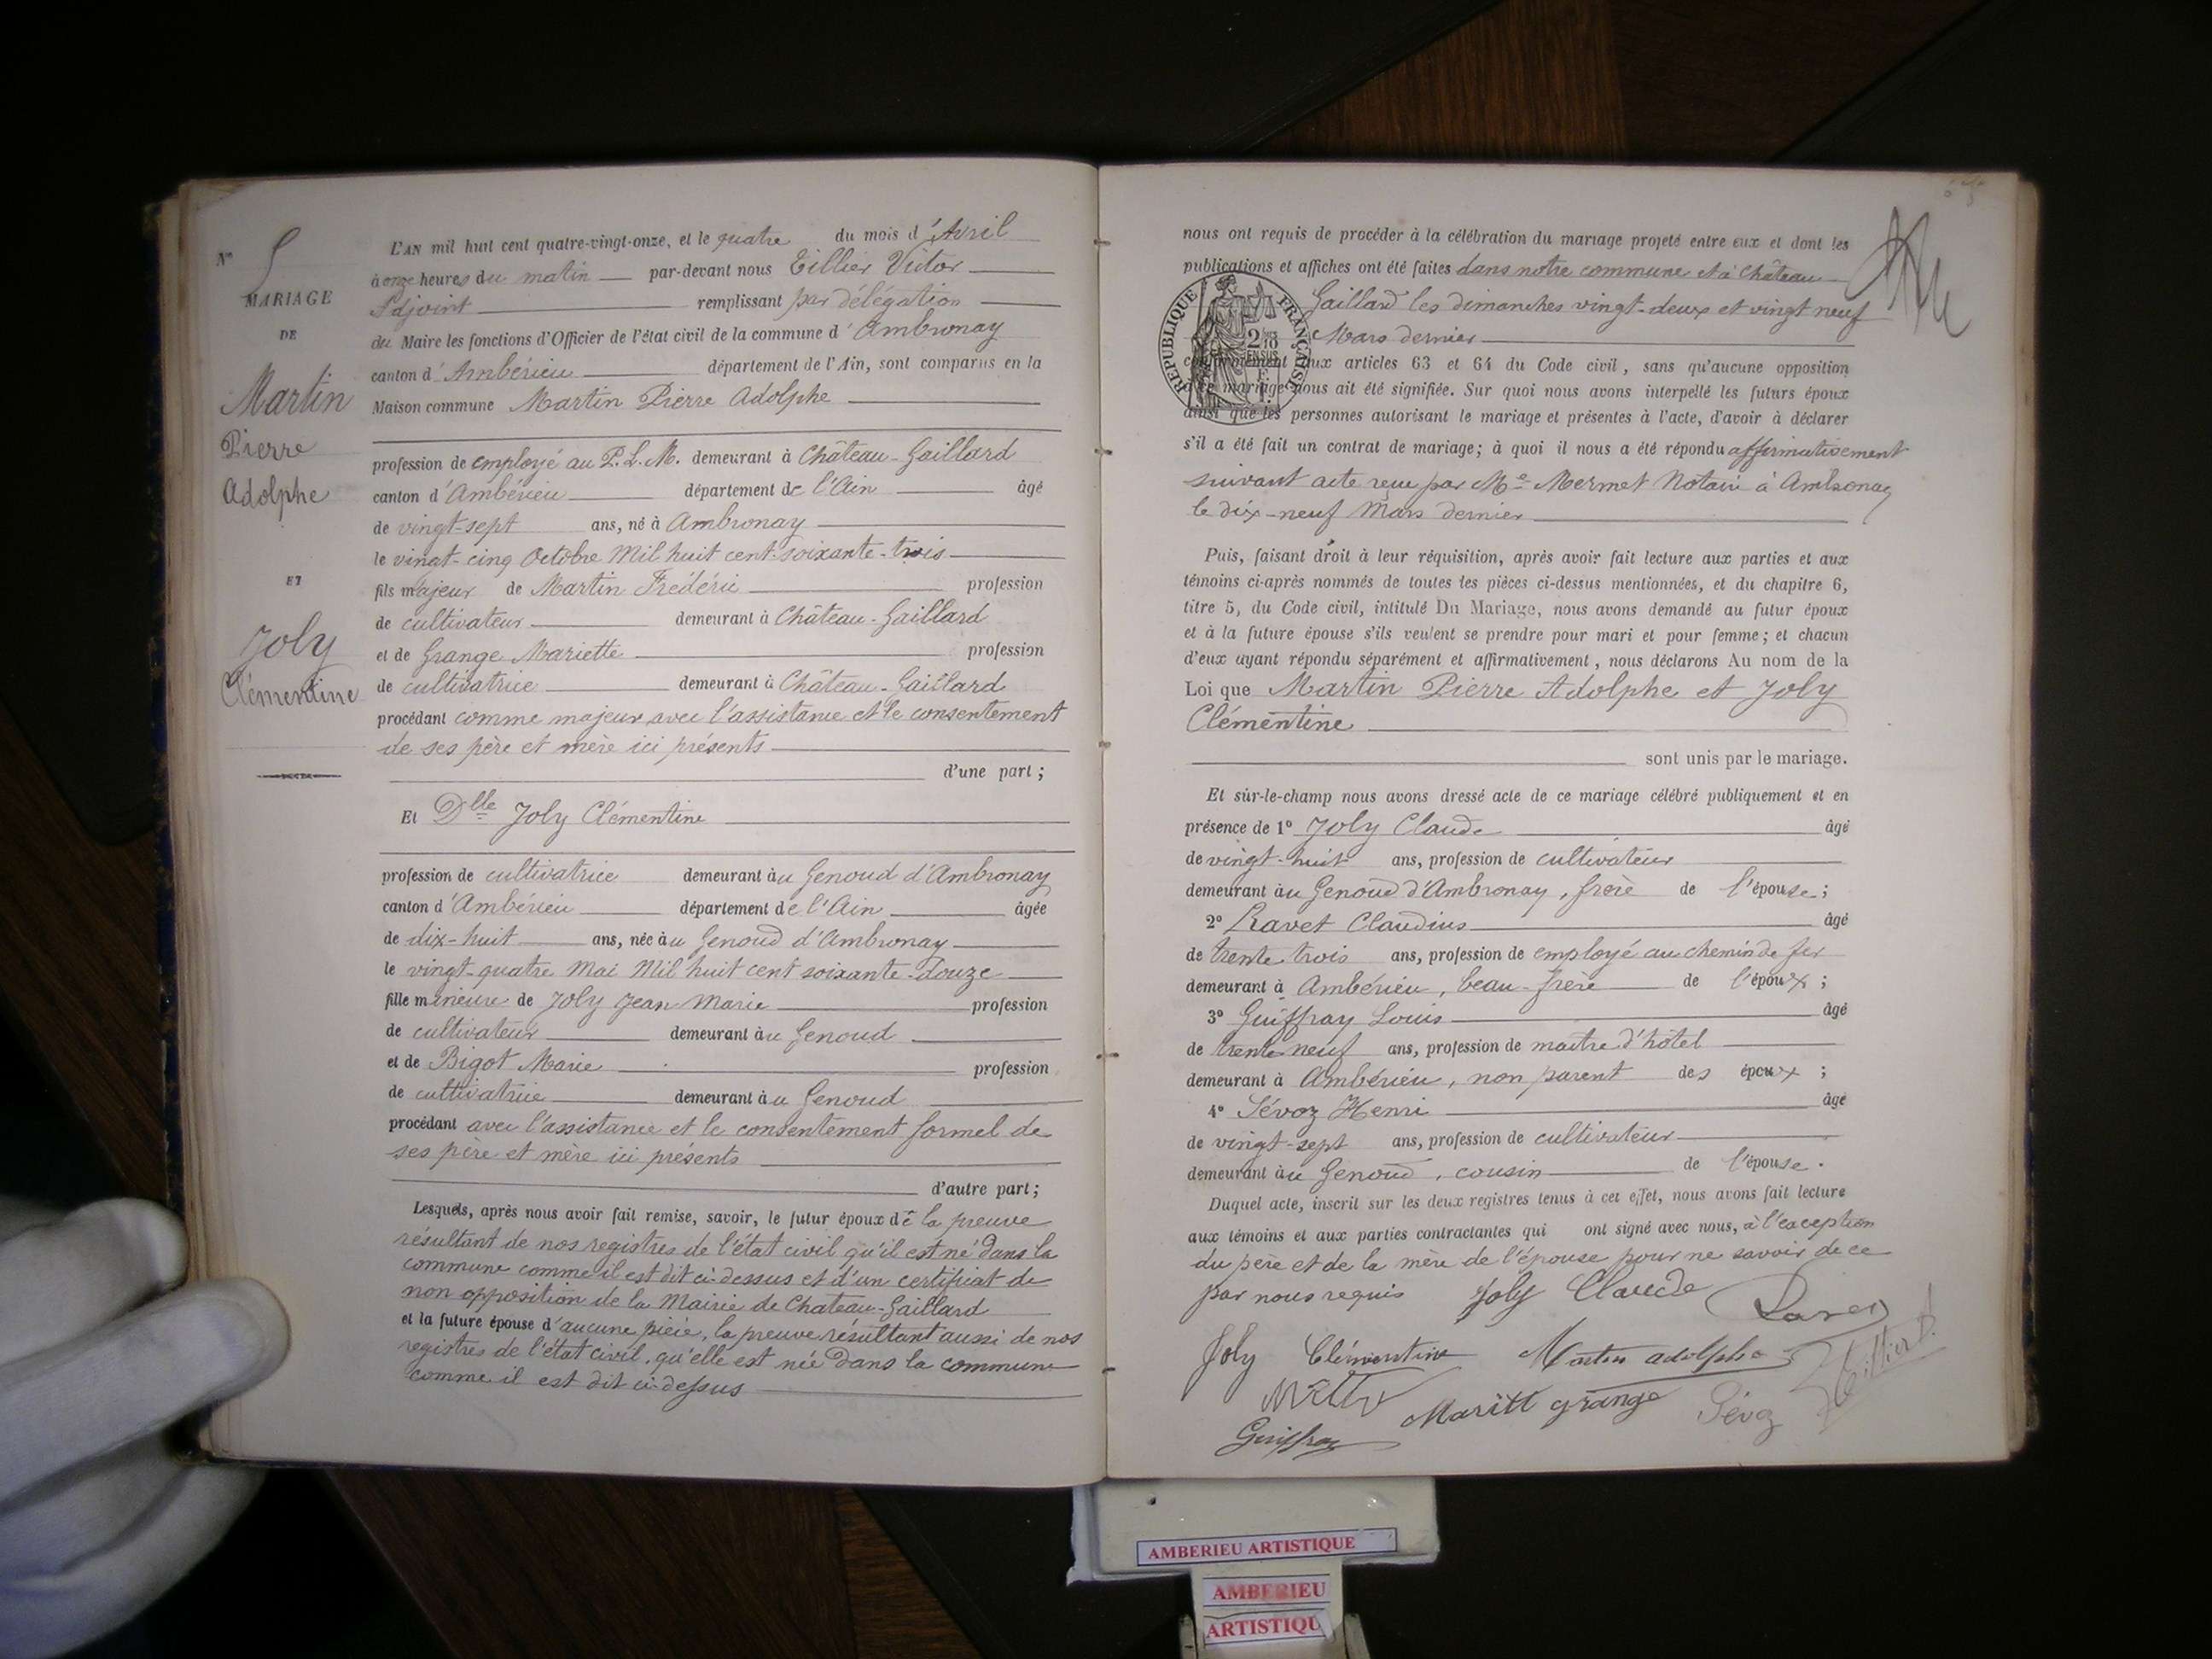 N° 5
MARIAGE
DE
Martin
Pierre
Adolphe
ET
Joly
Clémentine
L'AN mil huit cent quatre-vingt-onze, et le quatre du mois d'Avril
à onze heures du matin par-devant nous Tillier Victor
Adjoint remplissant par délégation
du Maire les fonctions d'Officier de l'état civil de la commune d'Ambronay
canton d'Ambérieu département de l'Ain, sont comparus en la
Maison commune Martin Pierre Adolphe
profession de employé au P. L. M. demeurant à Château-Gaillard
canton d'Ambérieu département de l'Ain âgé
de vingt-sept ans, né à Ambronay
le vingt-cinq Octobre Mil huit cent soixante-trois
fils majeur de Martin Frédéric profession
de cultivateur demeurant à Château-Gaillard
et de Grange Mariette profession
de cultivatrice demeurant à Château-Gaillard
procédant comme majeur avec l'assistance et le consentement
de ses père et mère ici présents
d'une part;
Et Dlle Joly Clémentine
profession de cultivatrice demeurant àu Genoud d'Ambronay
canton d'Ambérieu département de l'Ain âgée
de dix-huit ans, née àu Genoud d'Ambronay
le vingt-quatre Mai Mil huit cent soixante-douze
fille mineure de Joly Jean Marie profession
de cultivateur demeurant àu Genoud
et de Bigot Marie profession
de cultivatrice demeurant àu Genoud
procédant avec l'assistance et le consentement formel de
ses père et mère ici présents
d'autre part;
Lesquels, après nous avoir fait remise, savoir, le futur époux de la preuve
résultant de nos registres de l'état civil qu'il est né dans la
commune comme il est dit ci-dessus et d'un certificat de
non opposition de la Mairie de Chateau-Gaillard
et la future épouse d'aucune pièce, la preuve résultant aussi de nos
registres de l'état civil, qu'elle est née dans la commune
comme il est dit ci-dessus
nous ont requis de procéder à la célébration du mariage projeté entre eux et dont les
publications et affiches ont été faites dans notre commune et à Château
Gaillard les dimanches vingt-deux et vingt neuf
Mars dernier
RÉPUBLIQUE FRANÇAISE
conformément aux articles 63 et 64 du Code civil, sans qu'aucune opposition
à ce mariage nous ait été signifiée. Sur quoi nous avons interpellé les futurs époux
ainsi que les personnes autorisant le mariage et présentes à l'acte, d'avoir à déclarer
s'il a été fait un contrat de mariage; à quoi il nous a été répondu affirmativement
suivant acte reçu par Me Mermet Notaire à Ambronay
le dix-neuf Mars dernier
Puis, faisant droit à leur réquisition, après avoir fait lecture aux parties et aux
témoins ci-après nommés de toutes les pièces ci-dessus mentionnées, et du chapitre 6,
titre 5, du Code civil, intitulé Du Mariage, nous avons demandé au futur époux
et à la future épouse s'ils veulent se prendre pour mari et pour femme; et chacun
d'eux ayant répondu séparément et affirmativement, nous déclarons Au nom de la
Loi que Martin Pierre Adolphe et Joly
Clémentine
sont unis par le mariage.
Et sûr-le-champ nous avons dressé acte de ce mariage célébré publiquement et en
présence de 1° Joly Claude âgé
de vingt-huit ans, profession de cultivateur
demeurant àu Genoud d'Ambronay, frère de l'épouse;
2° Ravet Claudius âgé
de trente trois ans, profession de employé au chemin de fer
demeurant à Ambérieu, beau-frère de l'époux;
3° Guiffray Louis âgé
de trente neuf ans, profession de maître d'hôtel
demeurant à Ambérieu, non parent des époux;
4° Sévoz Henri âgé
de vingt-sept ans, profession de cultivateur
demeurant àu Genoud, cousin de l'épouse.
Duquel acte, inscrit sur les deux registres tenus à cet effet, nous avons fait lecture
aux témoins et aux parties contractantes qui ont signé avec nous, à l'exception
du père et de la mère de l'épouse pour ne savoir de ce
par nous requis Joly Claude Ravet
Joly Clémentine Martin adolphe Tillier
Mariett grange Sévoz
Guiffray
AMBERIEU ARTISTIQUE
AMBERIEU
ARTISTIQU